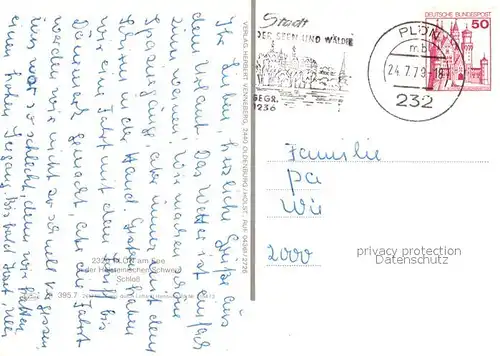 Ihr Lieben, herzliche Grüße aus
dem Urlaub. Das Wetter ist einfach
zum weinen. Wir machen schöne
Spaziergänge, aber immer mit dem
Schirm in der Hand. Gestern haben
wir eine Fahrt mit dem Schiff bis
Dänemark gemacht, aber die Fahrt
werden wir nicht so schnell vergessen
war so schlecht, denn wir hatten
einen hohen Seegang. Bis bald
VERLAG HERBERT VENNEBERG, 2440 OLDENBURG/HOLST., RUF 04361/2726
2320 PLÖN am See
in der Holsteinischen Schweiz
Schloß
395.7
Stadt
DER SEEN UND WÄLDER
GEGR.
1236
PLÖN
mb
24.7.79-18
232
DEUTSCHE BUNDESPOST
50
Familie
2000
privacy protection
Datenschutz